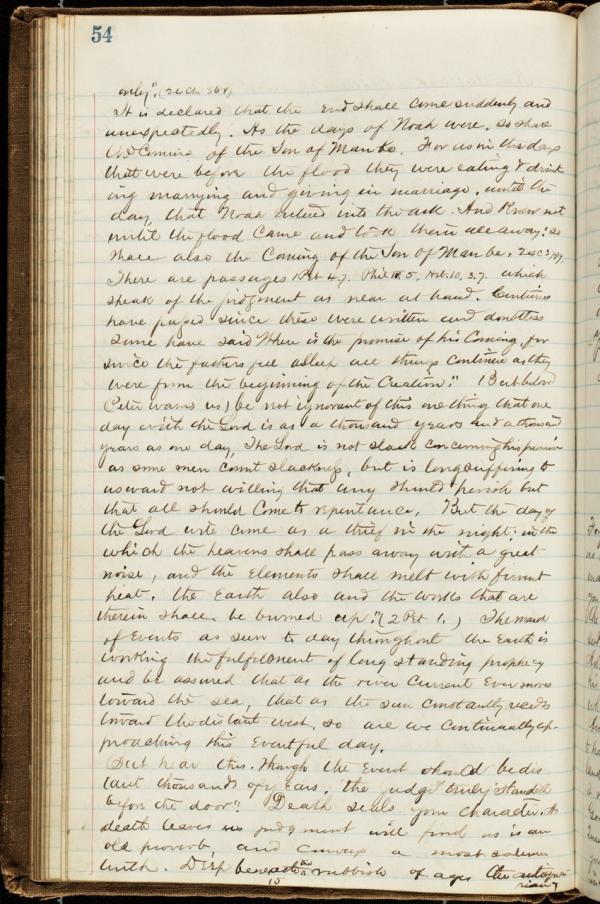 54
only". (24 Ch 36 v)
It is declared that the End shall Come suddenly and
unexpectedly. As the days of Noah were, so shall
the Coming of the Son of Man be. For as in the days
that were before the flood they were eating & drink
ing marrying and giving in marriage, until the
day, that Noah entered into the ark. And Knew not
until the flood Came and took them all away: so
shall also the Coming of the Son of Man be. 24 C 37, 39,
There are passages 1 Pet 4.7. Phil 4.5, Heb. 10, 37. which
speak of the judgment as near at hand. Centuries
have passed since these were written and doubtless
some have said "Where is the promise of his Coming, for
since the fathers fell asleep all things Continue as they
were from the beginning of the Creation". (But beloved
Peter warns us) be not ignorant of this one thing that one
day with the Lord is as a thousand years and a thousand
years as one day, The Lord is not slack Concerning his promise
as some men Count slackness, but is longsuffering to
usward not willing that any should perish but
that all should Come to repentance, But the day of
the Lord will come as a thief in the night: in the
which the heavens shall pass away with a great
noise, and the Elements shall melt with fervent
heat. the Earth also and the works that are
therein shall be burned up". (2 Pet 1.) The
of Events as seen to day throughout the Earth is
working the fulfillment of long standing prophecy
and be assured that as the river Current Ever moves
toward the sea, that as the sun Constantly recedes
toward the distant west, so are we Continually ap-
proaching this Eventful day.
But hear this. Though the Event should be dis
tant thousands of years, "the judge truly standeth
before the door". Death seals your character. As
death leaves us judgment will find us is an
old proverb, and Conveys a most solemn
truth. Deep beneath the rubbish of ages the antiqua
15 rians